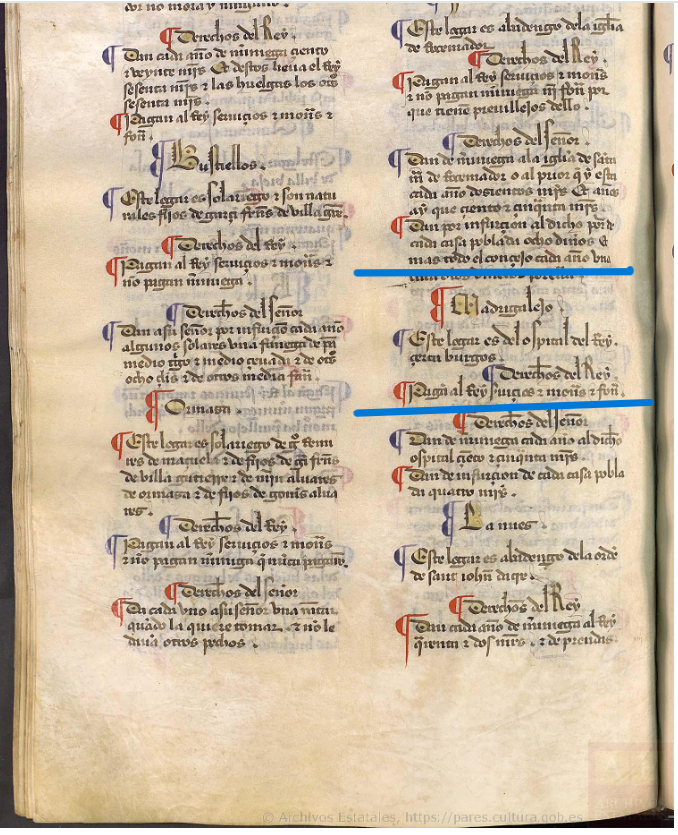 dor no mora y ninguno .
Derechos del Rey .
Dan cada año de mimiega ciento
τ veynte mrs . Et destos lieva el Rey
sesenta mrs τ las huelgas los otros
sesenta mrs .
Pagan al Rey serviçios τ mon̄s τ
fon̄ .
Bustiellos .
Este logar es solariego τ son natu
rales fijos de garçi ferrns de villa
Derechos del Rey .
Pagan al Rey serviçios τ mon̄s τ
no pagan mimiega .
Derechos del Señor
Dan a su señor por infurçion cada año
algunos solares una fanega de pan
medio tgo τ medio çevada τ de otros
ocho çls τ de otros media fan̄ .
Ormaça .
Este logar es solariego de
res de maçuela τ de fijos de ferrns
de villa gutierre τ de min alvares
de ormaça τ de fijos de alva
res .
Derechos del Rey .
Pagan al Rey serviçios τ mon̄s
τ no pagan mimiega q̄ nunca pagarō .
Derechos del señor
Da cada uno a su señor una
quādo la quiere tomar . τ no le
otros pechos .
Este logar es abadengo dela iglīa
de
Derechos del Rey .
Pagan al Rey serviçios τ mon̄s
τ no pagan mimiega nī fon̄ por
que tienē previllejos dello .
Derechos del Señor .
Dan de mimiega ala iglīa de
de o al prior q̄ y esta
cada año dosientos mrs Et años
ay que ciento τ çinquēta mrs
Dan por infurçion al dicho por de
cada casa poblada ocho dineros E
mas todo el conçejo cada año una
Madrigalejo .
Este logar es del ospital del Rey .
çerca burgos .
Derechos del Rey
Pagā al Rey s̄viçios τ mon̄s τ fon̄ .
Derechos del Señor
Dan de mimiega cada año al dicho
ospital çiēto τ çinquēta mrs .
Dan de infurçion de cada casa pobla
da quatro mrs .
La nues .
Este logar es abadengo dela ordē
de sant iohn̄ dacre .
Derechos del Rey
Dan cada año de mimiega al Rey
q̄renta τ dos mrs . τ de
© Archivos Estatales, https://pares.cultura.gob.es